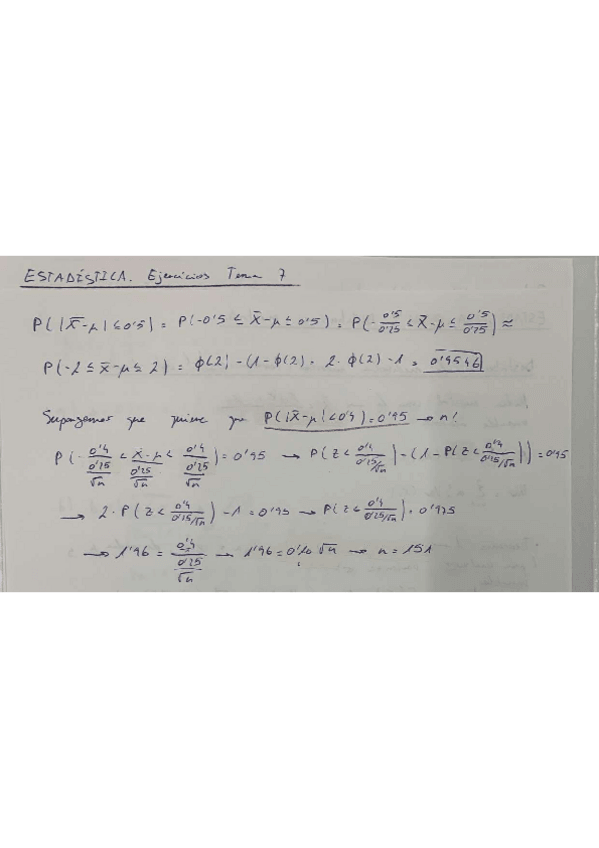 ESTADÍSTICA. Ejercicios Tema 7
P(|X̄-μ|≤0'5) = P(-0'5 ≤ X̄-μ ≤ 0'5) = P(-0'5/0'25 ≤ X̄-μ ≤ 0'5/0'25) ≈
P(-2 ≤ X̄-μ ≤ 2) = φ(2) - (1-φ(2)) = 2·φ(2)-1 = 0'9546
Supongamos que quiere que P(|X̄-μ|<0'4)=0'95 → n!
P(-0'4/(0'25/√n) < (X̄-μ)/(0'25/√n) < 0'4/(0'25/√n)) = 0'95 → P(Z < 0'4/(0'25/√n)) - (1-P(Z < 0'4/(0'25/√n))) = 0'95
→ 2·P(Z < 0'4/(0'25/√n)) - 1 = 0'95 → P(Z < 0'4/(0'25/√n)) = 0'975
→ 1'96 = 0'4/(0'25/√n) → 1'96 = √n → n = 151